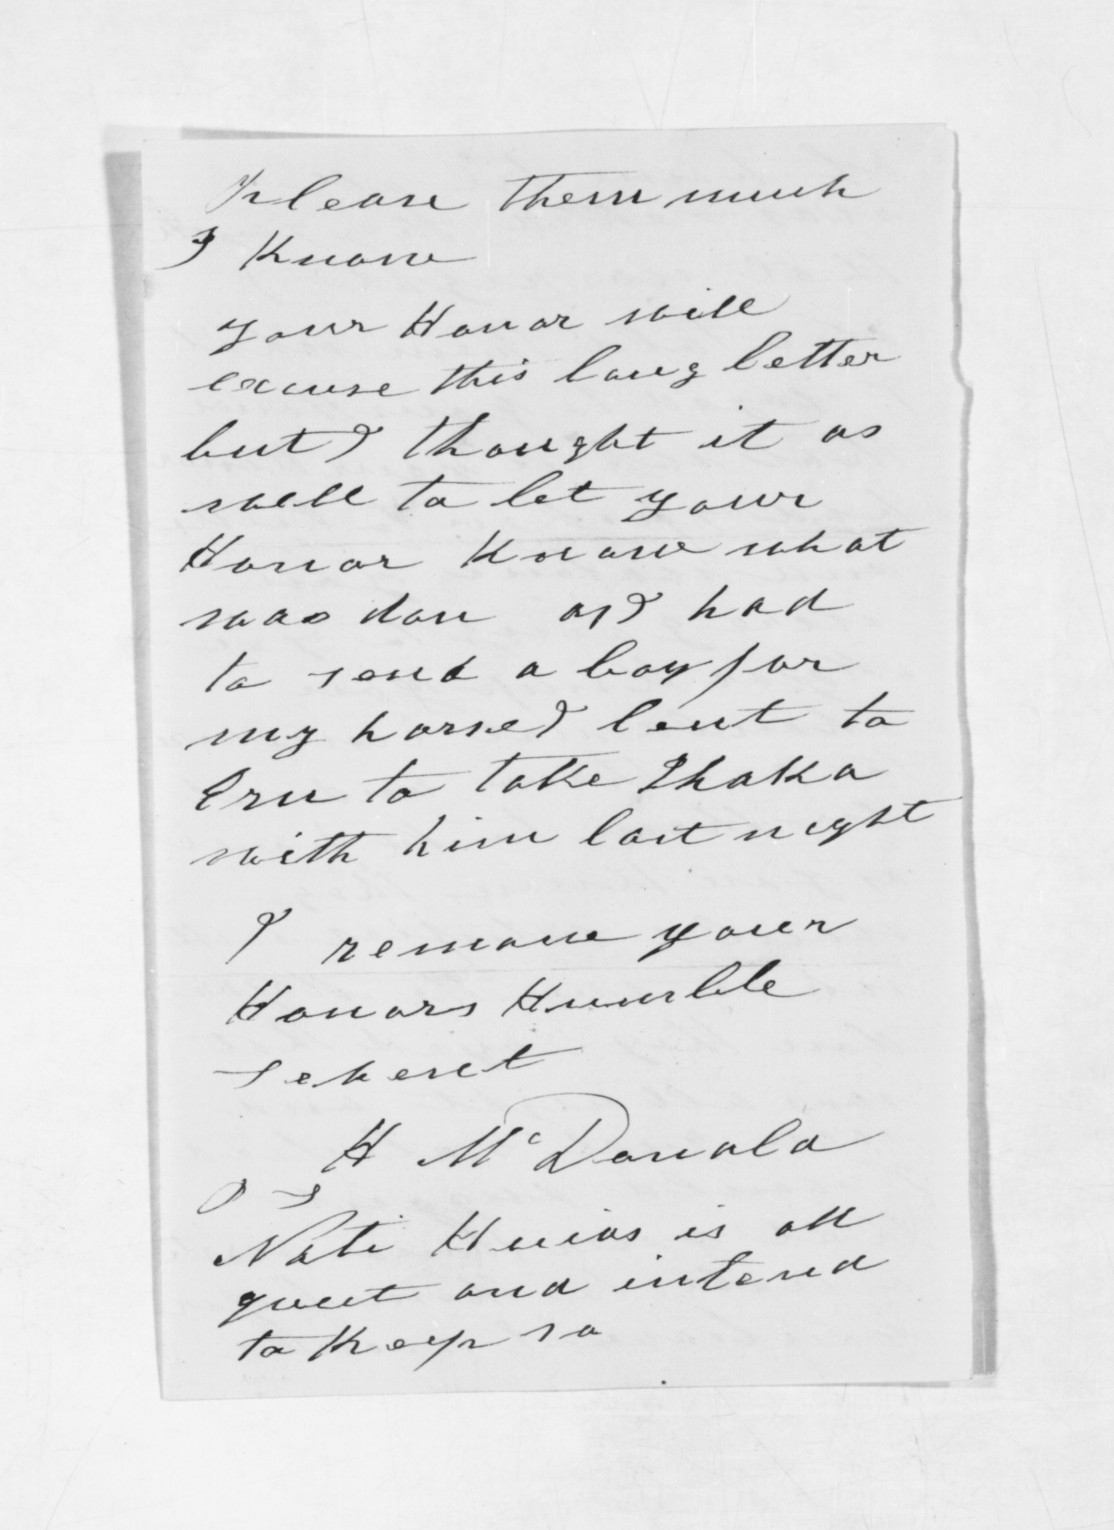 Please them much
I Know
your Honor will
excuse this long letter
but I thought it as
well to let your
Honor Know what
was don as I had
to send a boy for
my horse I lent to
Eru to take Ihaka
with him last night
I remane your
Honors Humble
Servent
H McDonald
P S
Nati Huias is all
queet and intend
to Keep so